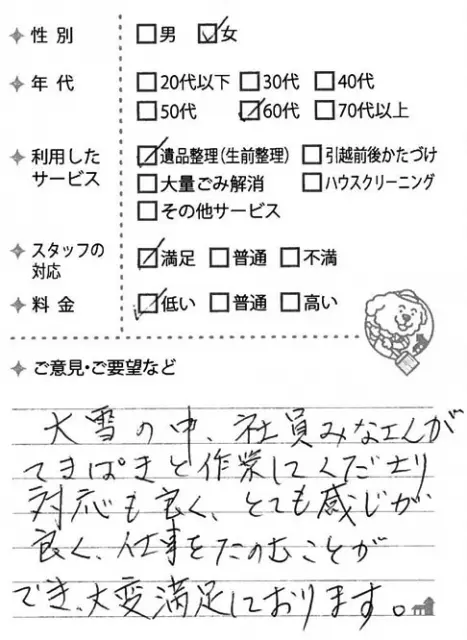 性別 □男 ☑女
年代 □20代以下 □30代 □40代
□50代 ☑60代 □70代以上
利用したサービス ☑遺品整理(生前整理) □引越前後かたづけ
□大量ごみ解消 □ハウスクリーニング
□その他サービス
スタッフの対応 ☑満足 □普通 □不満
料金 ☑低い □普通 □高い
ご意見・ご要望など
大雪の中、社員みなさんが
てきぱきと作業してくださり
対応も良く、とても感じが
良く、仕事をたのむことが
でき、大変満足しております。